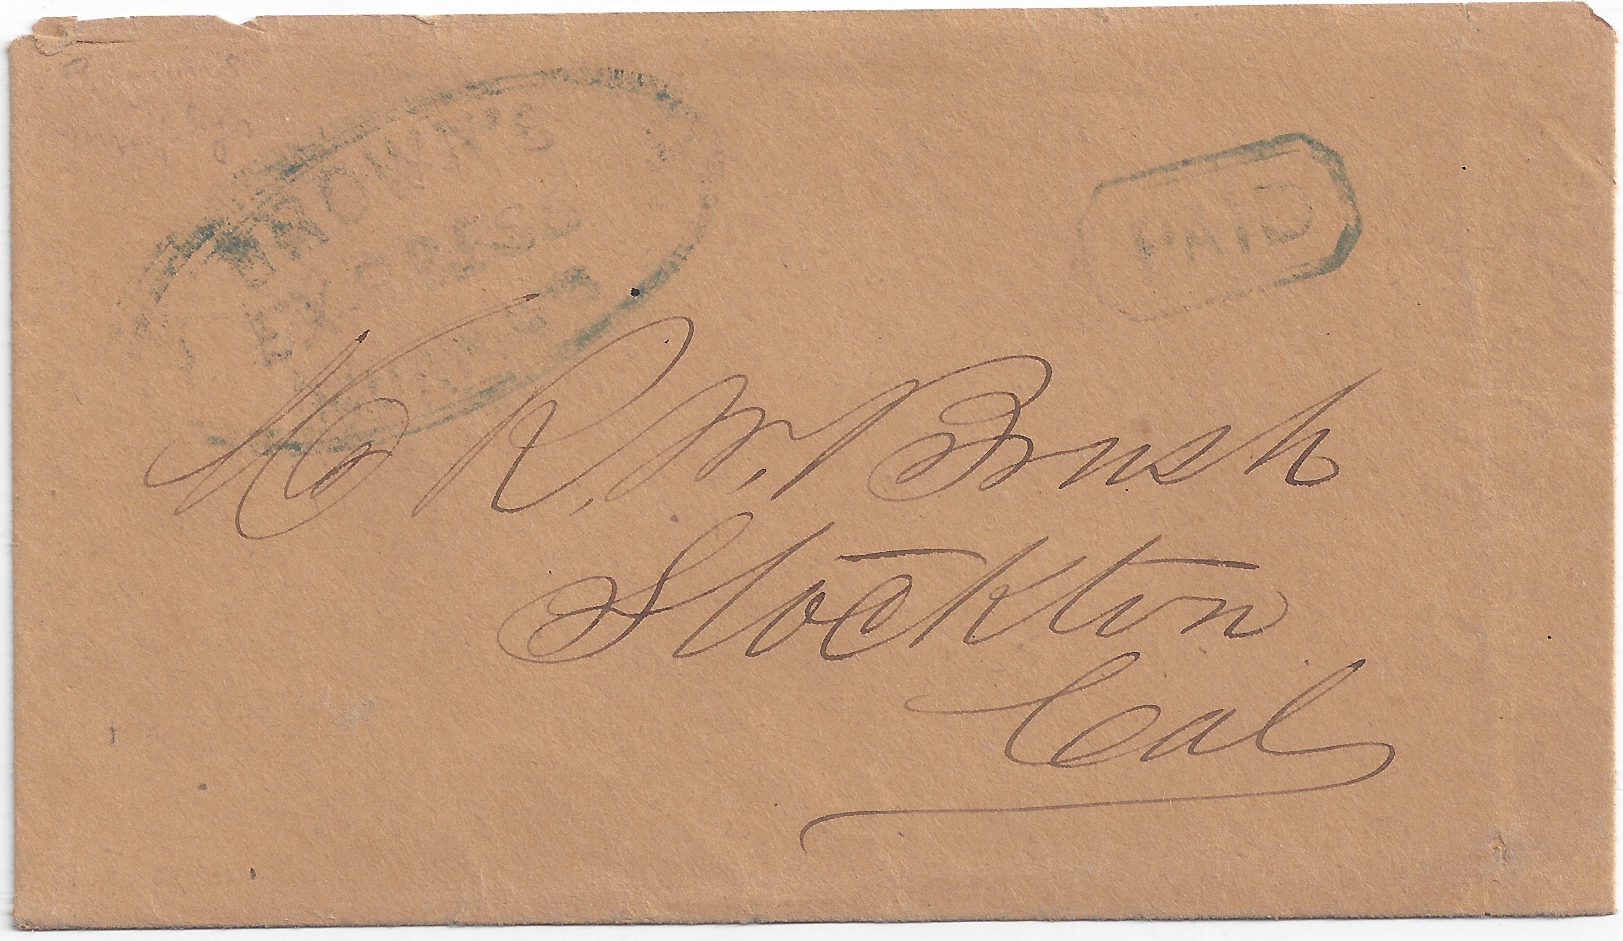 BROWN'S
EXPRESS
PAID
Mr R. W. Brush
Stockton
Cal